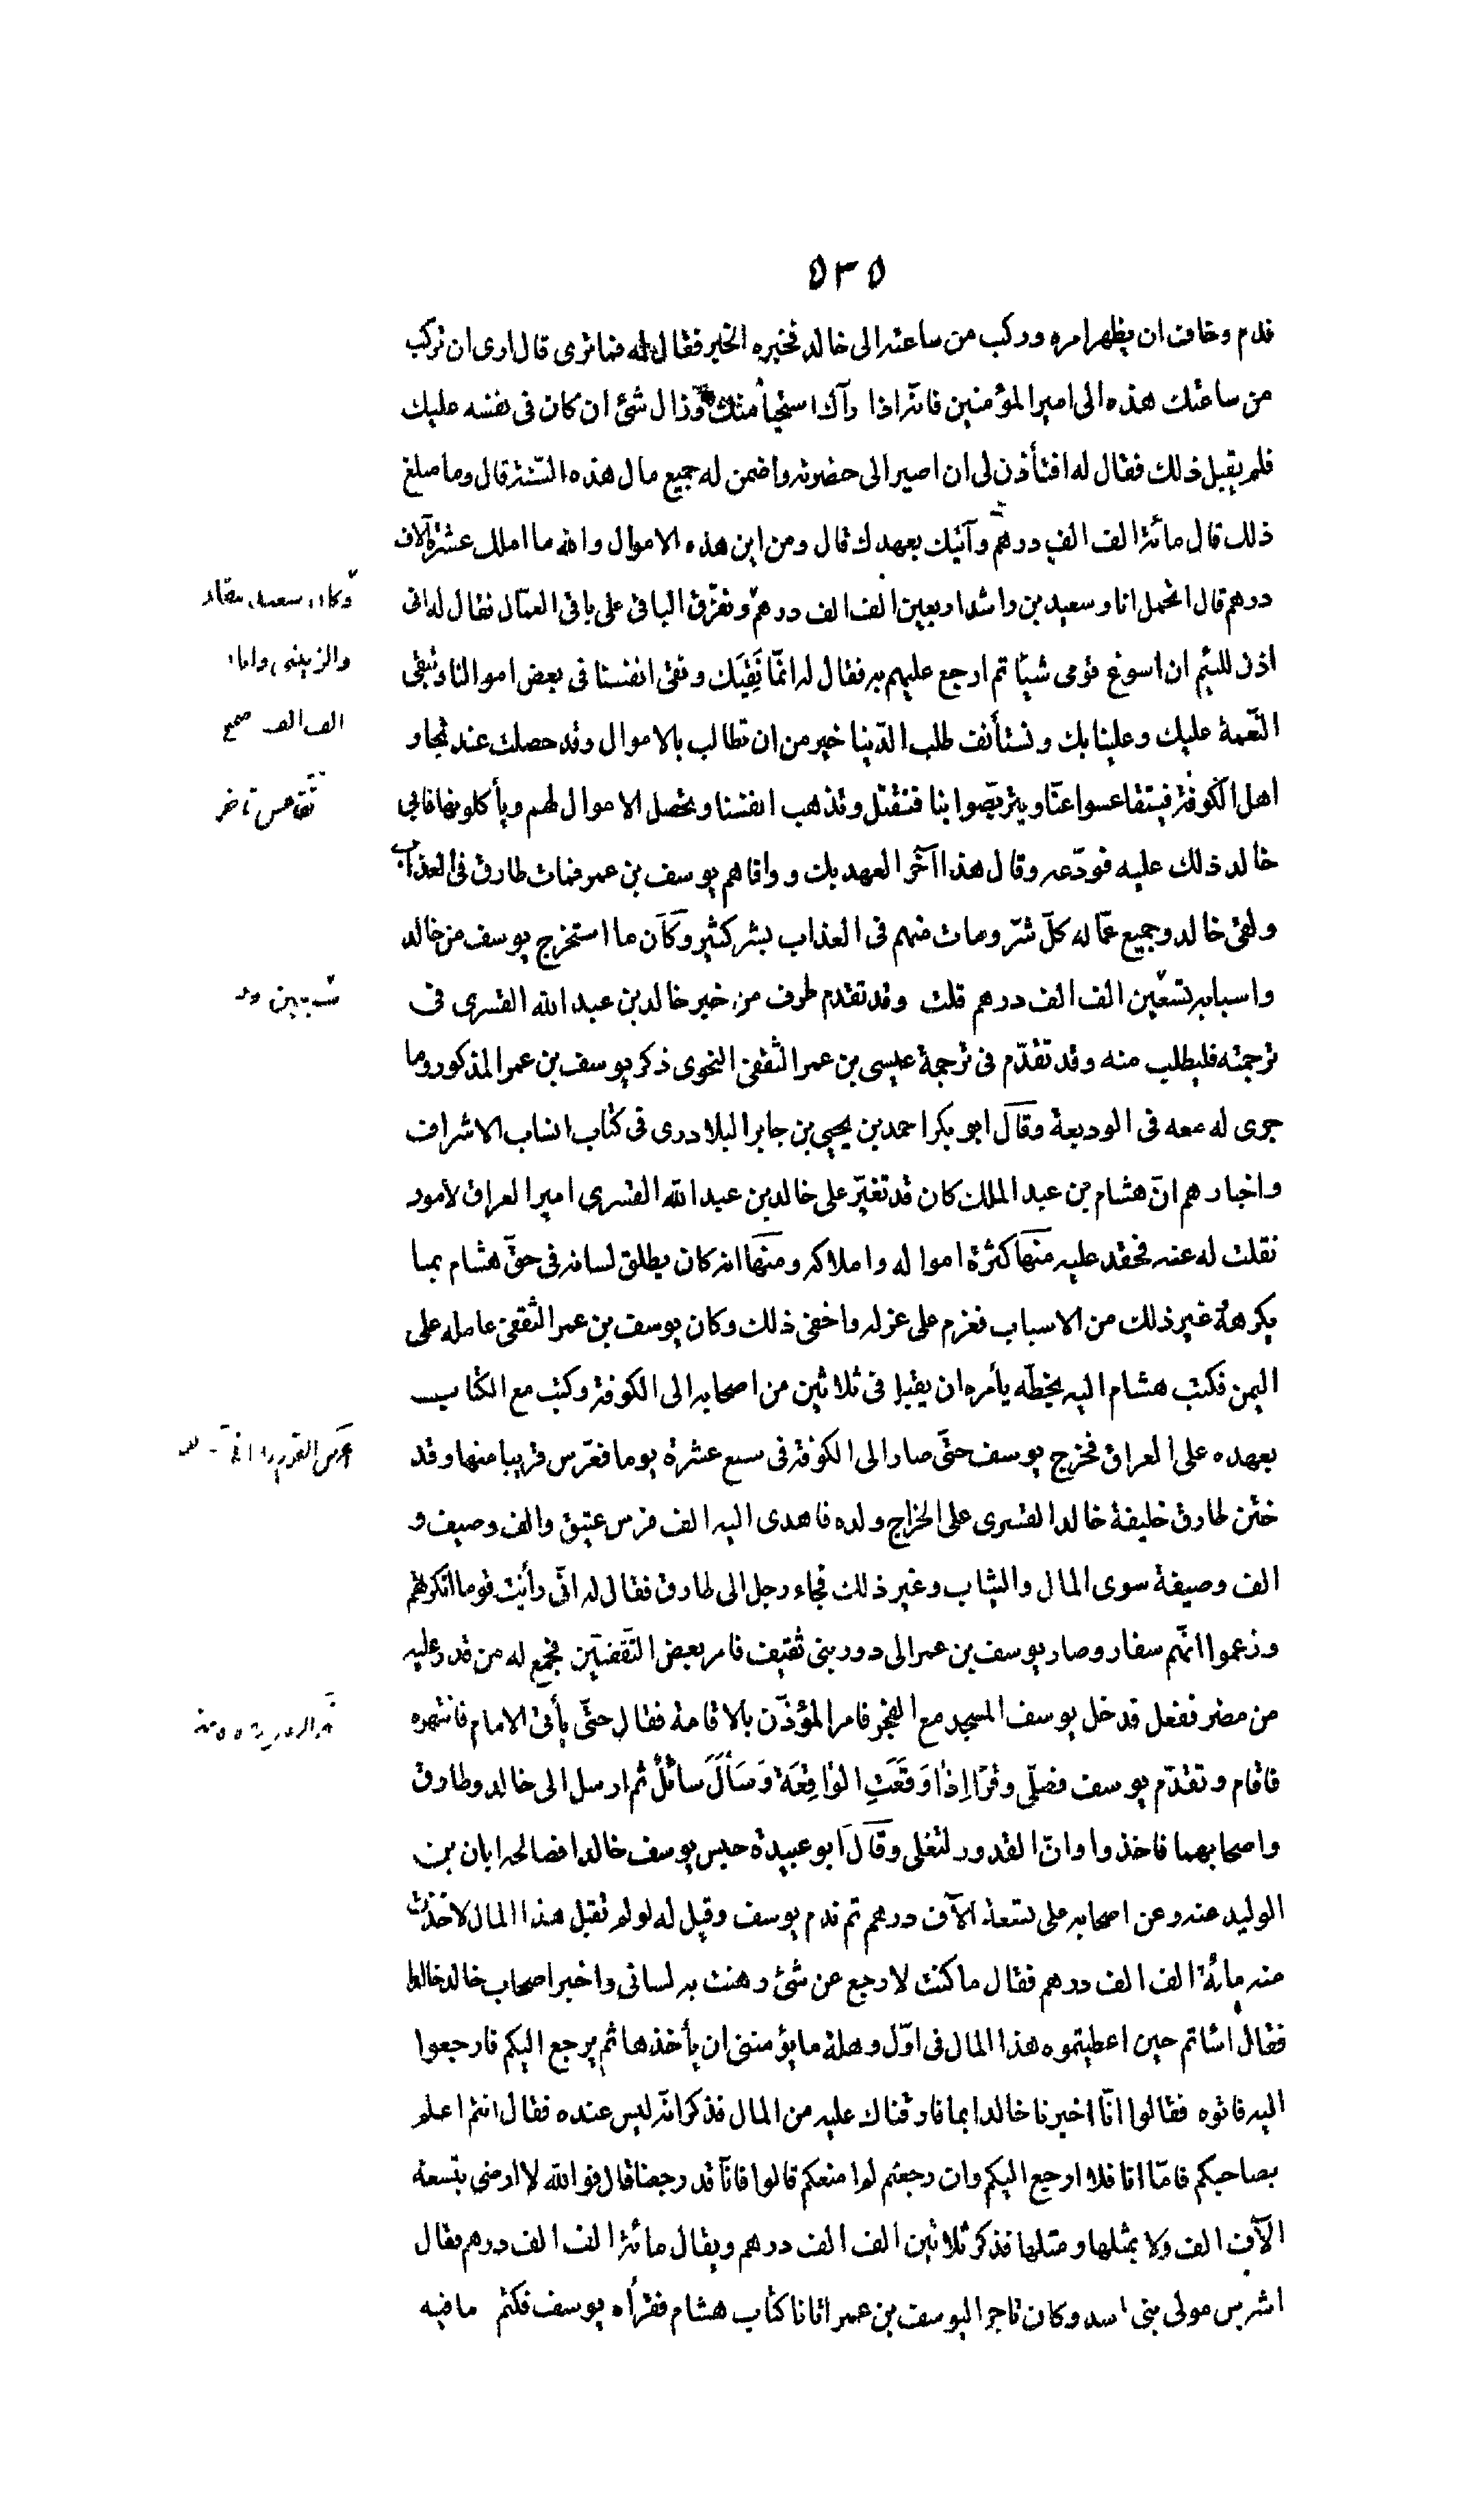 ٥٣٥
ندم وخاف ان يظهر امره وركب من ساعته الى خالد فخبره الخبر فقال له فما ترى قال ارى ان تركب
من ساعتك هذه الى امير المؤمنين فانه اذا رآك استحيا منك وزال شئ ان كان فى نفسه عليك
فلم يقبل ذلك فقال له افتأذن لى ان اصير الى حضرته واضمن له جميع مال هذه السّنة قال وما مبلغ
ذلك قال مائة الف الف درهم وآتيك بعهدك قال ومن اين هذه الاموال والله ما املك عشرة آلاف
درهم قال اتحمل انا وسعيد بن راشد اربعين الف الف درهم وتفرّق الباقى على باقى العمّال فقال له انى
اذن للئيم ان اسوغ قومى شيًا ثم ارجع عليهم به فقال له انمّا نَقِيَك ونقى انفسنا فى بعض اموالنا وتبقى
النّعمة عليك وعلينا بك ونستأنف طلب الدّنيا خير من ان تطالب بالاموال وقد حصلت عند تجار
اهل الكوفة فيتقاعسوا عنّا ويتربّصوا بنا فنقتل وتذهب انفسنا وتحصل الاموال لهم ويأكلونها فابى
خالد ذلك عليه فودّعه وقال هذا آخر العهد بك ووافاهم يوسف بن عمر فمات طارق فى العذاب
ولقى خالد وجميع عمّاله كلّ شرّ ومات منهم فى العذاب بشر كثير وكان ما استخرج يوسف من خالد
واسبابه تسعين الف الف درهم قلت وقد تقدم طرف من خبر خالد بن عبد الله القسرى فى
ترجمته فليطلب منه وقد تقدّم فى ترجمة عيسى بن عمر الثقفى النحوى ذكر يوسف بن عمر المذكور وما
جرى له معه فى الوديعة وقال ابو بكر احمد بن يحيى بن جابر البلادرى فى كتاب انساب الاشراف
واخبارهم انّ هشام بن عبد الملك كان قد تغيّر على خالد بن عبد الله القسرى امير العراق لامور
نقلت له عنه فحقد عليه منها كثرة امواله واملاكه ومنها انه كان يطلق لسانه فى حقّ هشام بما
يكرهه غير ذلك من الاسباب فعزم على عزله واخفى ذلك وكان يوسف بن عمر الثقفى عامله على
اليمن فكتب هشام اليه بخطّه يأمره ان يقبل فى ثلاثين من اصحابه الى الكوفة وكتب مع الكتاب
بعهده على العراق فخرج يوسف حتّى صار الى الكوفة فى سبع عشرة يوما فعرّس قريبا منها وقد
ختن طارق خليفة خالد القسرى على الخراج ولده فاهدى اليه الف فرس عتيق والف وصيف و
الف وصيفة سوى المال والثياب وغير ذلك فجاء رجل الى طارق فقال له انّى رأيت قوما انكرتهم
وزعموا انّهم سفار وصار يوسف بن عمر الى دور بنى ثقيف فامر بعض الثّقفيّين فجمع له من قدر عليه
من مضر ففعل فدخل يوسف المسجد مع الفجر فامر المؤذّن بالاقامة فقال حتّى يأتى الامام فانتهره
فاقام وتقدّم يوسف فصلّى وقرأ اِذَا وَقَعَتِ الْوَاقِعَة وَسَأَلَ سائلٌ ثم ارسل الى خالد وطارق
واصحابهما فاخذوا وانّ القدور لتغلى وقال ابو عبيدة حبس يوسف خالدا فصالحه ابان بن
الوليد عنه وعن اصحابه على تسعة آلآف درهم ثم ندم يوسف وقيل له لو لم تقبل هذا المال لاخذت
منه مائة الف الف درهم فقال ما كنت لارجع عن شئ رهنت به لسانى واخبر اصحاب خالد خالدا
فقال اسأتم حين اعطيتموه هذا المال فى اوّل وهلة ما يؤمننى ان يأخذها ثم يرجع اليكم فارجعوا
اليه فاتوه فقالوا انّا اخبرنا خالدا بما فارقناك عليه من المال فذكر انّه ليس عنده فقال انتم اعلم
بصاحبكم فامّا انا فلا ارجع اليكم وان رجعتم لم امنعكم قالوا فانّا قد رجعنا قال فوالله لا ارضى بتسعة
آلآف الف ولا بمثلها ومثلها فذكر ثلاثين الف الف درهم ويقال مائة الف الف درهم فقال
اشرس مولى بنى اسد وكان تاجرا ليوسف بن عمر اتانا كتاب هشام فقرأه يوسف فكتم ما فيه
والزينبى
الف الف صح
تقاعس تأخر